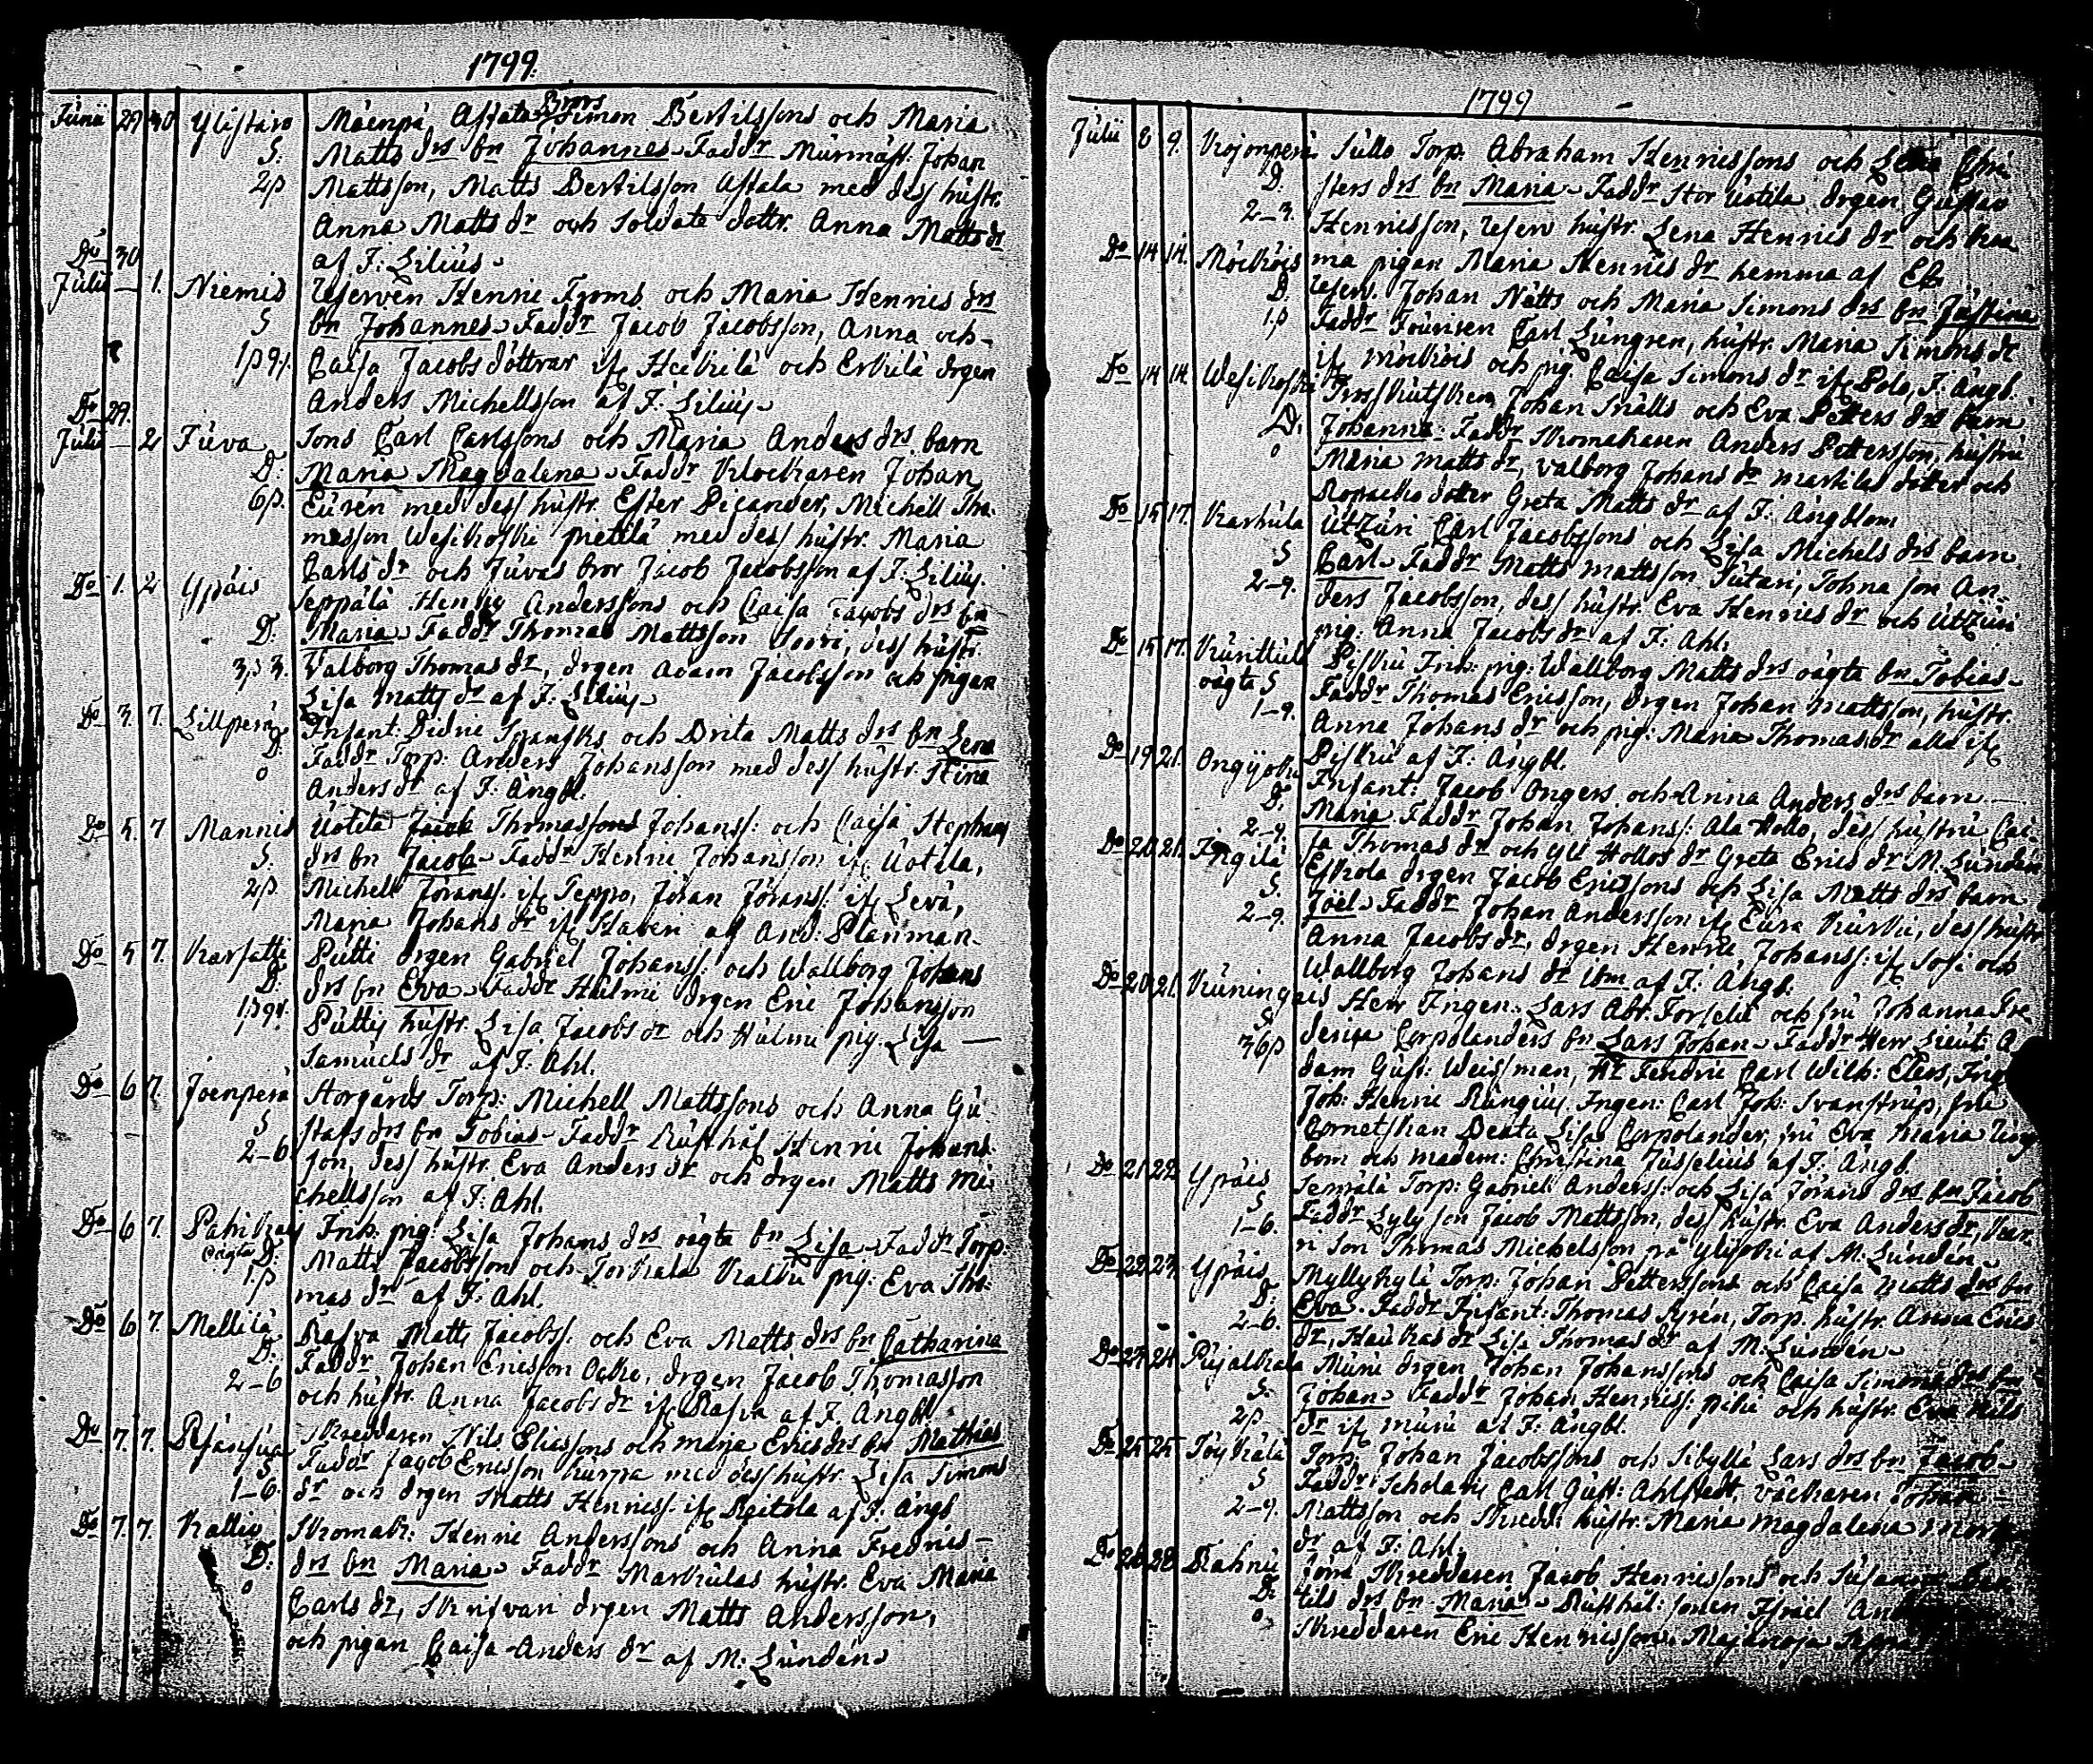 1799.
Junii 29 30 Ylistaro Mäenpä Astala Brors Simon Bertilssons och Maria
S. Matts drs bn Johannes Faddr Murmäst: Johan
2p Mattsson, Matts Bertilsson Astala med dess hustr.
Anna Matts dr och Soldate dottr. Anna Matts dr
Do 30 af J: Lilius
Julii — 1. Niemis Reserven Henric Froms och Maria Henrics drs
S bn Johannes Faddr Jacob Jacobsson, Anna och
1p 9. Caisa Jacobs döttrar if Heikilä och Erkilä drgen
Anders Michellsson af J: Lilius
Do 29.
Julii — 2 Juva Sons Carl Carlssons och Maria Anders drs barn
D. Maria Magdalena Faddr Klockaren Johan
6p. Eurén med dess hustr. Ester Picander, Michell Tho-
masson Wesikoski Pietilä med dess hustr. Maria
Carls dr och Juvas bror Jacob Jacobsson af J: Lilius.
Do 1. 2 Ypäis Seppälä Henric Anderssons och Caisa Jacobs drs bn
D. Maria Faddr Thomas Mattsson Sorri, dess hustr.
3p 3. Valborg Thomas dr, drgen Adam Jacobsson och pigan
Lisa Matts dr af J: Lilius
Do 3. 7. Lillperä Infant: Didric Spansks och Brita Matts drs bn Lena
D. Faddr Torp: Anders Johansson med dess hustr. Stina
0 Anders dr af J: Ängbl.
Do 5. 7 Mannis Uotila Jacob Thomassons Johanss: och Caisa Stephans
S. drs bn Jacob Faddr Henric Johansson if Uotila,
2p Michell Jöranss. if Seppo, Jöran Jöranss: if Levä,
Maria Johans dr if Haveri af And: Planman.
Do 5 7 Karsatti Putti drgen Gabriel Johanss: och Wallborg Johans
D. drs bn Eva Faddr Hulmi drgen Eric Johansson
1p 9. Puttis hustr. Lisa Jacobs dr och Hulmi pig. Lisa —
Samuels dr af J: Ahl.
Do 6 7. Joenperä Storgårds Torp: Michell Mattssons och Anna Gu-
S stafs drs bn Tobias Faddr Rusthål Henric Johans-
2–6 son, dess hustr. Eva Anders dr och drgen Matts Mi-
chellsson af J: Ahl.
Do 6 7. Pahikais Inh. pig: Lisa Johans drs oägta bn Lisa Faddr Torp:
oägta D. Matts Jacobsson och Torkala Kalki pig: Eva Tho-
1p mas dr af J: Ahl.
Do 6 7. Mellilä Rasva Matts Jacobss: och Eva Matts drs bn Catharina
D. Faddr Johan Ericsson Ocko, drgen Jacob Thomasson
2–6 och hustr. Anna Jacobs dr if Rasva af J. Ängbl.
Do 7. 7. Skreddaren Nils Eliassons och Maja Erics drs bn Mathias
S Faddr Jacob Ericsson Kurpa med dess hustr. Lisa Simons
1–6. dr och drgen Matts Henricss. if af J. Ängb
Do 7. 7. Kallio Skomak: Henric Anderssons och Anna Fredrics-
D. drs bn Maria Faddr Markulas hustr. Eva Maria
0 Carls dr, drgen Matts Andersson,
och pigan Caisa Anders dr af M: Lundén
1799
Julii 8 9. Kojonperä Sullo Torp. Abraham Henricssons och Lena Chri-
D. sters drs bn Maria Faddr Stor Uotila drgen Gustav
2–3. Henricsson, reserv hustr. Lena Henrics dr och
ma pigan Maria Henrics dr hemma af
Do 14 14. Mörköis Reserv. Johan Nätts och Maria Simons drs bn Justina
D. Faddr Carl Lungren, hustr. Maria Simons dr
1p if Mörköis och pig Caisa Simons dr if Polo, J: Ängb.
Do 14 14. Wesikoski Johan Snälls och Eva Petters drs barn
D. Johanna Faddr Skomakaren Anders Pettersson, hustru
0 Maria Matts dr, Valborg Johans dr Martilas dotter och
dotter Greta Matts dr af J. Ängblom
Do 15 17. Karhula Utzuri Carl Jacobssons och Lisa Michels drs barn
S Carl Faddr Matts Mattsson Sutari, Tohna son An-
2–9. ders Jacobsson, dess hustr. Eva Henrics dr och Utzuri
pig: Anna Jacobs dr af J: Ahl.
Do 15 17. Piskü Inh: pig: Wallborg Matts drs oägta bn Tobias
oägta S Faddr Thomas Ericsson, drgen Johan Mattsson, hustr.
1–9. Anna Johans dr och pig: Maria Thomas dr alla if
Piskü af J: Ängbl.
Do 19 21. Infant: Jacob Ongers och Anna Anders drs barn —
D. Maria Faddr Johan Johanss: Ala Hollo, dess hustru Cai-
2–9. sa Thomas dr och Yli Hollos dr Greta Erics dr M. Lundén
Do 20 21. Ingilä Eskola drgen Jacob Ericssons och Lisa Matts drs barn
S. Joel Faddr Johan Andersson if Eura Kurki, dess hustr
2–9. Anna Jacobs dr, drgen Henric Johanss: if och
Wallborg Johans dr ibm af J: Ängb.
Do 20 21. Kuningais Herr Ingen: Lars Abr. Forselii och fru Johanna Fre-
S. derica Corpolanders bn Lars Johan Faddr Herr Lieut: A-
36p dam Gust: Weissman, Hr Fendric Carl Wilh: Elers, Ing
Joh: Henric Rungius, Ingen: Carl Joh: Svanstrup, fru
Cornetskan Beata Lisa Corpolander, fru Eva Maria
bom och madem: Christina Jusselius af J: Ängb.
Do 21 22. Ypäis Seppälä Torp: Gabriel Anderss: och Lisa Jörans drs bn Jacob
S Faddr Lyly son Jacob Mattsson, dess hustr. Eva Anders dr,
1–6. ri son Thomas Michelsson på Ylijoki af M: Lundén
Do 22 23. Ypäis Myllykylä Torp: Johan Petterssons och Caisa Matts drs bn
D. Eva Faddr Infant: Thomas Pyrén, Torp. hustr. Anna Erics
2–6. dr, Haukas dr Lisa Thomas dr af M: Lundén
Do 24 24. Pujalkala Muru drgen Johan Johanssons och Caisa Simons drs bn
S. Johan Faddr Johan Henricss: och hustr. Eva Nils
2p dr if Muru af J: Ängbl.
Do 25 25. Torp. Johan Jacobssons och Sibylla Lars drs bn Jacob
S Faddr Scholari Carl Gust: Ahlstedt, väckaren Johan
2–9. Mattsson och Skredd: hustr. Maria Magdalena
dr af J: Ahl.
Do 26 28. Skreddaren Jacob Henricssons och Susanna Ber-
D. tils drs bn Maria Rusthål: sonen Israel
0 Skreddaren Eric Henricsson